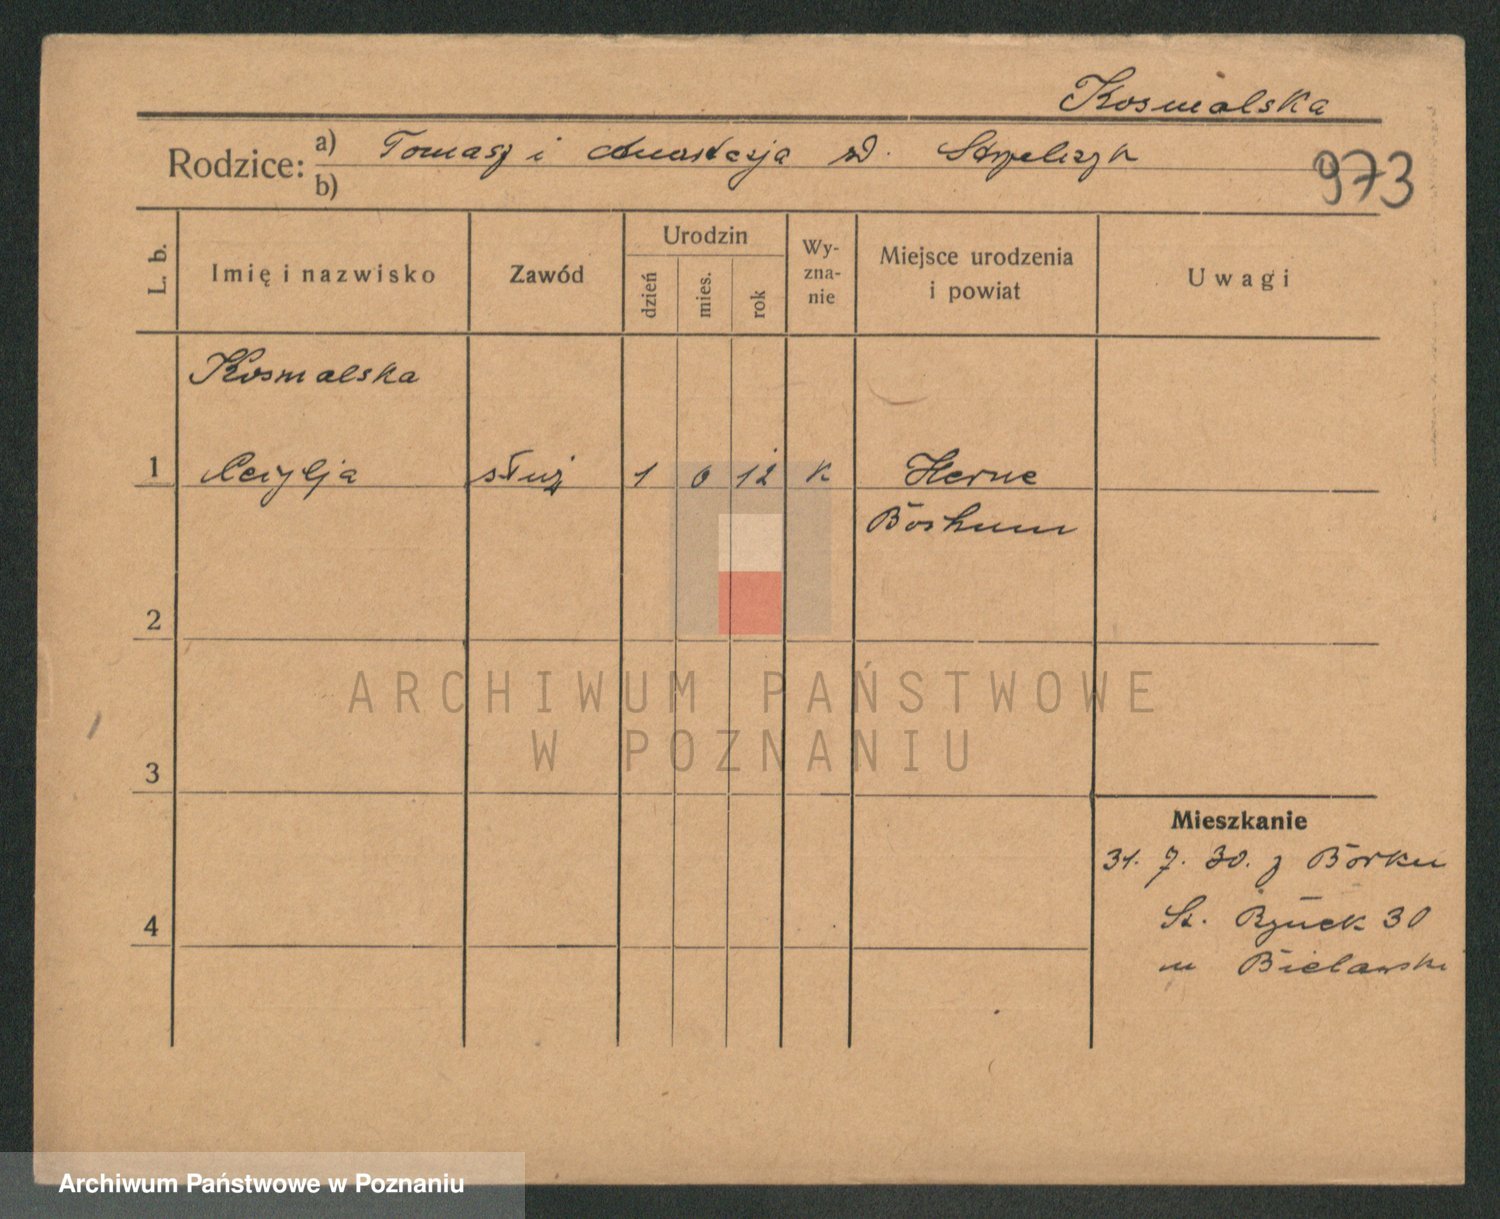 Kosmalska
Rodzice: a) Tomasz i Anastazja zd. Strzelczyk
b)
973
L. b.
Imię i nazwisko
Zawód
Urodzin
dzień
mies.
rok
Wy-
zna-
nie
Miejsce urodzenia
i powiat
Uwagi
Kosmalska
1 Cecylja służ 1 6 12 k Herne
Bochum
2
3
4
Mieszkanie
31. 7. 30. z Borku
St. Rynek 30
m Bielawski
ARCHIWUM PAŃSTWOWE
W POZNANIU
Archiwum Państwowe w Poznaniu